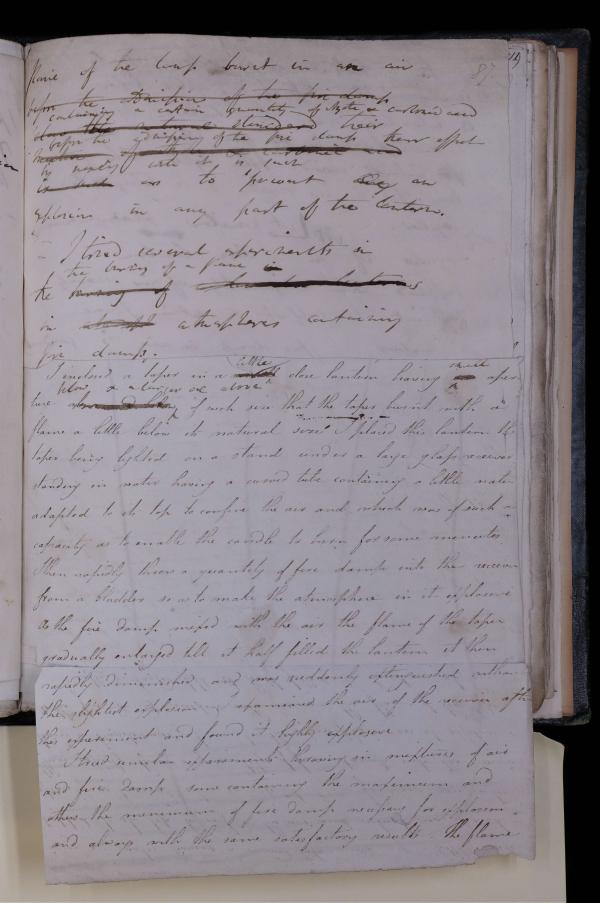 87
flame of the lamp burnt in an air
before the Dissipation of the fire damp
containing a certain quantity of Azote & carbonic acid
before the of the fire damp
by mixing with it is such
is such as to prevent any an
explosion in any part of the lantern.
I tried several experiments in
the burning of a flame in
the burning of
in atmospheres containing
fire damp.
little small
I enclosed a taper in a close lantern having aper
below & a larger one above
ture of such size that the taper burnt with a
flame a little below its natural size. I placed this lantern the
taper being lighted on a stand under a large glass receiver
standing in water having a curved tube containing a little water
adapted to its top to confine the air and which was of such a
capacity as to enable the candle to burn for some minutes
I then rapidly threw a quantity of fire damp into the receiver
from a bladder so as to make the atmosphere in it explosive
As the fire damp mixed with the air the flame of the taper
gradually enlarged till it half filled the lantern it then
rapidly diminished and was suddenly extinguished without
the slightest explosion I examined the air of the receiver after
this experiment and found it highly explosive
I tried similar experiments throwing in mixtures of air
and fire damp some containing the maximum and
others the minimum of fire damp necessary for explosion
and always with the same satisfactory results. The flame